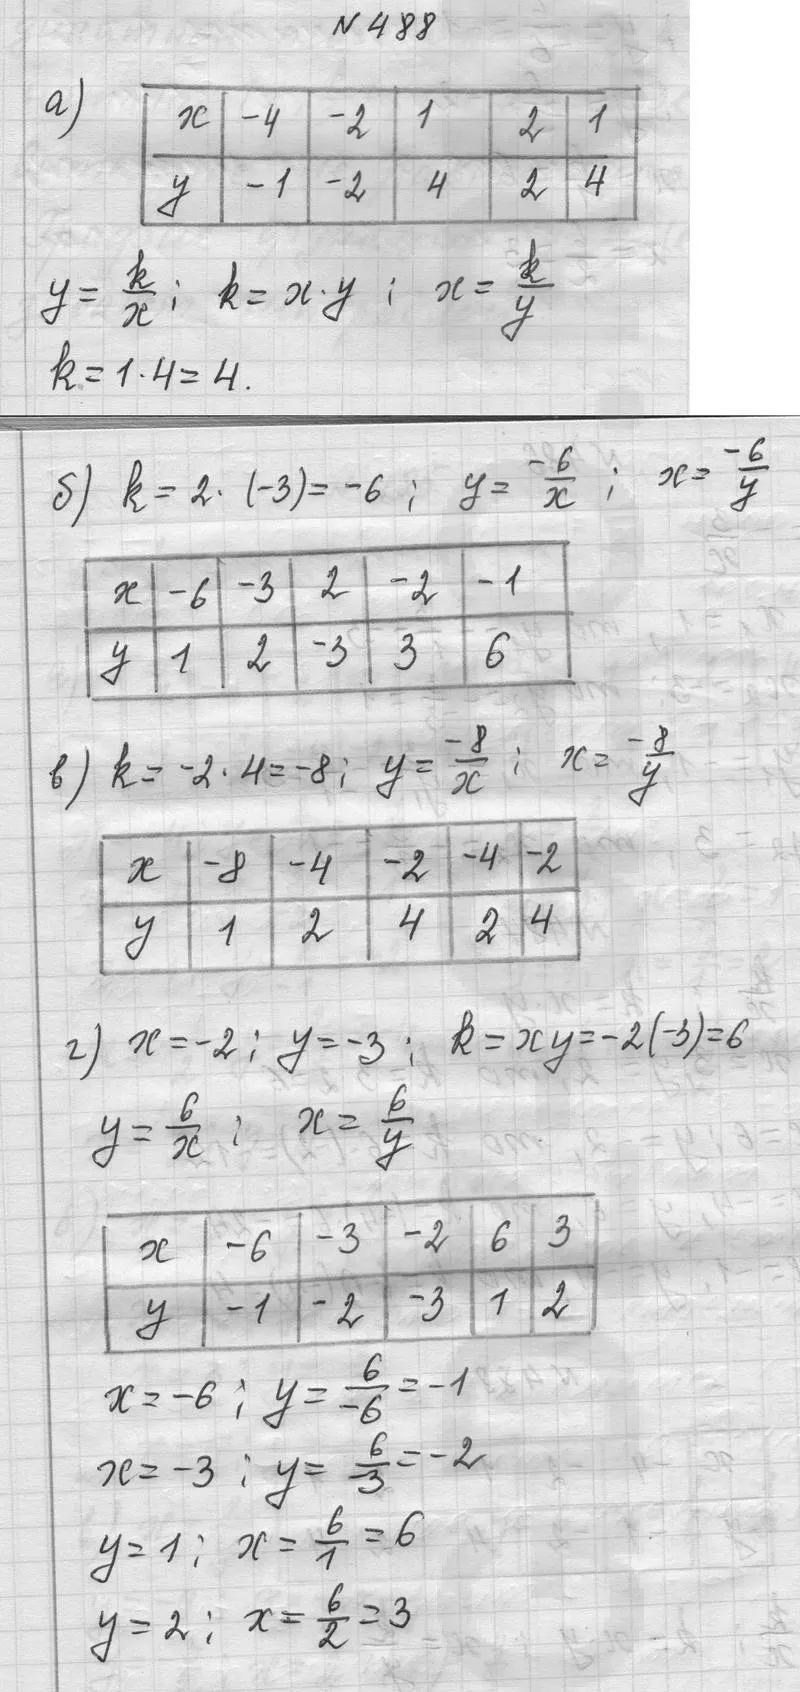 N 488
а)
x -4 -2 1 2 1
y -1 -2 4 2 4
y = k/x ; k = x·y ; x = k/y
k = 1·4 = 4.
б) k = 2·(-3) = -6 ; y = -6/x ; x = -6/y
x -6 -3 2 -2 -1
y 1 2 -3 3 6
в) k = -2·4 = -8 ; y = -8/x ; x = -8/y
x -8 -4 -2 -4 -2
y 1 2 4 2 4
г) x = -2 ; y = -3 ; k = xy = -2(-3) = 6
y = 6/x ; x = 6/y
x -6 -3 -2 6 3
y -1 -2 -3 1 2
x = -6 ; y = 6/-6 = -1
x = -3 ; y = 6/-3 = -2
y = 1 ; x = 6/1 = 6
y = 2 ; x = 6/2 = 3